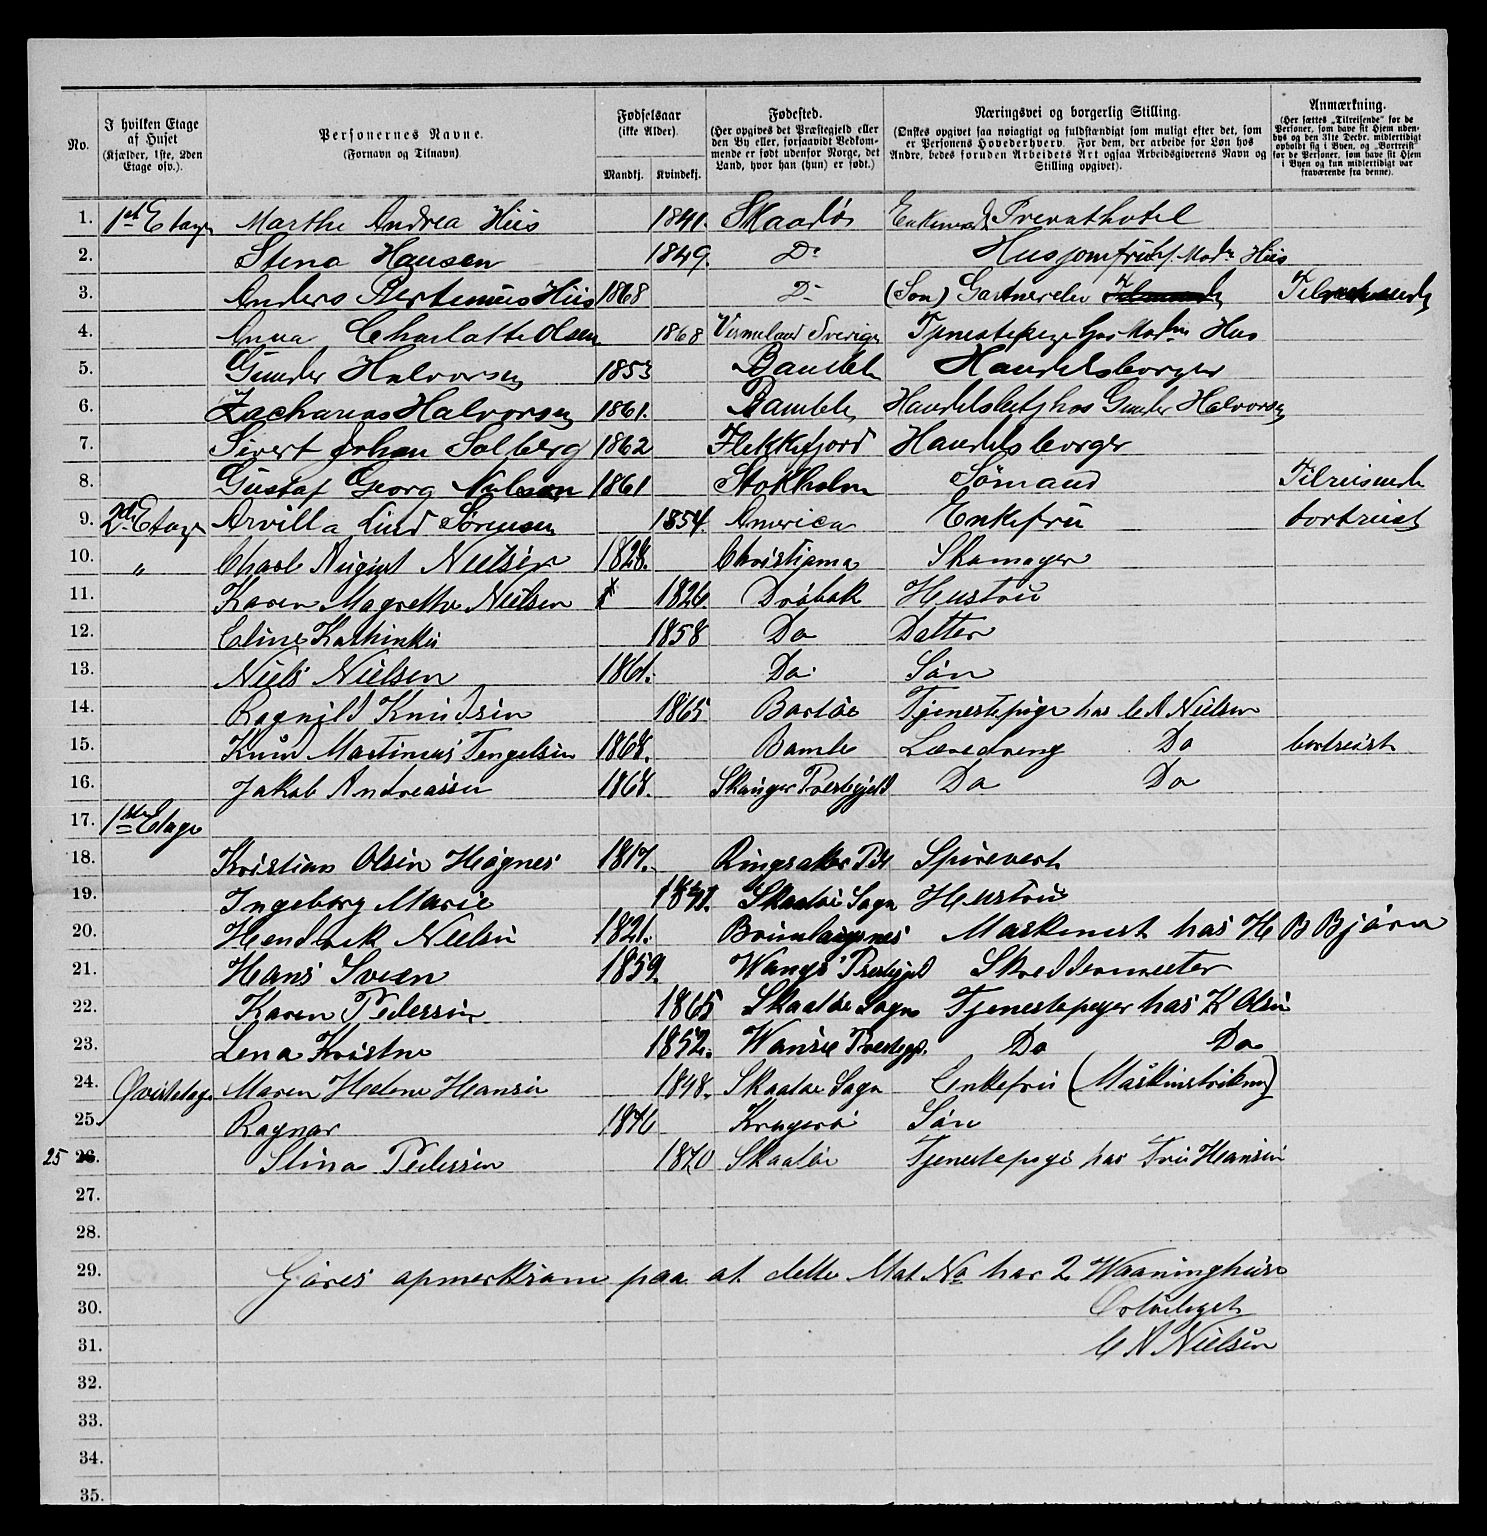 No. | I hvilken Etage af Huset (Kjælder, 1ste, 2den Etage osv.). | Personernes Navne. (Fornavn og Tilnavn) | Fødselsaar (ikke Alder). Mandkj. | Kvindekj. | Fødested. (Her opgives det Præstegjeld eller den By eller, forsaavidt Vedkommende er født udenfor Norge, det Land, hvor han (hun) er født.) | Næringsvei og borgerlig Stilling. (Ønskes opgivet saa nøiagtigt og fuldstændigt som muligt efter det, som er Personens Hovederhverv. For dem, der arbeide for Løn hos Andre, bedes foruden Arbeidets Art ogsaa Arbeidsgiverens Navn og Stilling opgivet). | Anmærkning. (Her sættes „Tilreisende“ for de Personer, som have sit Hjem udenbys og den 31te Decbr. midlertidigt opholdt sig i Byen, og „Bortreist“ for de Personer, som have sit Hjem i Byen og kun midlertidigt var fraværende fra denne).
1. 1st Etage Marthe Andrea Hiis 1841. Skaadø Privathotel
2. Stena Hansen 1849. Do Husjomfru Mad. Hiis
3. Anders Bertenius Hiis 1868 Do (Søn) Gartnerelev
4. Anna Charlotte Olsen 1868 Vermeland Sverige Tjenestepige hos Madm Hiis
5. Gunder Halvorsen 1853 Bamble Handelsborger
6. Zacharias Halvorsen 1861. Bamble Handelsbetj hos Gunder Halvorsen
7. Sivert Johan Solberg 1862 Flekkefjord Handelsborger
8. Gustaf Georg Nilson 1861 Stokholm Sømand Tilreisende
9. 2den Etage Arvilla Lind Sørensen 1854. America Enkefru bortreist
10. „ Charl August Nielsen 1828. Christjania Skomager
11. Karen Magrethe Nielsen 1826. Drøbak Hustru
12. Eline Kathinka 1858 Do Datter
13. Niels Nielsen 1861. Do Søn
14. Ragnild Knudsen 1865 Tjenestepige hos C A Nielsen
15. Knud Martinius Tengelsen 1868. Bamle Læredreng Do bortreist
16. Jakob Andreassen 1868. Do Do
17. 1ste Etage
18. Kristian Olsen Høgnes 1817. Ringsaker Pst
19. Ingeborg Marie Skaatøe Sogn Hustru
20. Hendrek Nielsen 1821. Brunlaugnes Maskenist hos H B Bjørn
21. Hans Sveen 1859. Wangs Prestegjeld Skreddermester
22. Karen Pedersen 1865 Skaatøe Sogn Tjenestepeger hos K Olsen
23. Lena Kristne 1852. Do Do
24. Qvistetage Maren Helene Hansen 1848. Skaatøe Sogn Enkefru
25. Ragnar 1876 Kragerø Søn
25 26. Stina Pedersen 1870 Skaatøe Tjenestepige hos Fru Hansen
27.
28.
29. Gøres opmerksom paa at dette Mat No har 2 Waaninghuse
30.
31. C A Nielsen
32.
33.
34.
35.